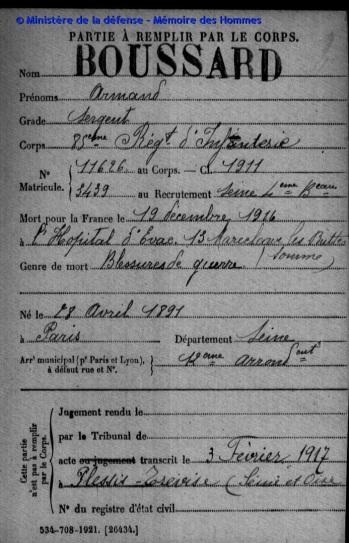 © Ministère de la défense - Mémoire des Hommes
PARTIE À REMPLIR PAR LE CORPS.
BOUSSARD
Nom
Prénoms Armand
Grade Sergent
Corps 85ème Régt d'Infanterie
N° 11626 au Corps. — Cl. 1911
Matricule. 3439 au Recrutement Seine 4eme Beau
Mort pour la France le 19 décembre 1916
à l'Hopital d'Evac. 13 les Buttes
(Somme)
Genre de mort Blessures de guerre
Né le 28 Avril 1891
à Paris Département Seine
Arr' municipal (p' Paris et Lyon), à défaut rue et N°. 12eme Arrondent
Cette partie n'est pas à remplir par le Corps.
Jugement rendu le
par le Tribunal de
acte ou jugement transcrit le 3 Février 1917
à Plessis- (Seine et Oise
N° du registre d'état civil
534-708-1921. [26434.]